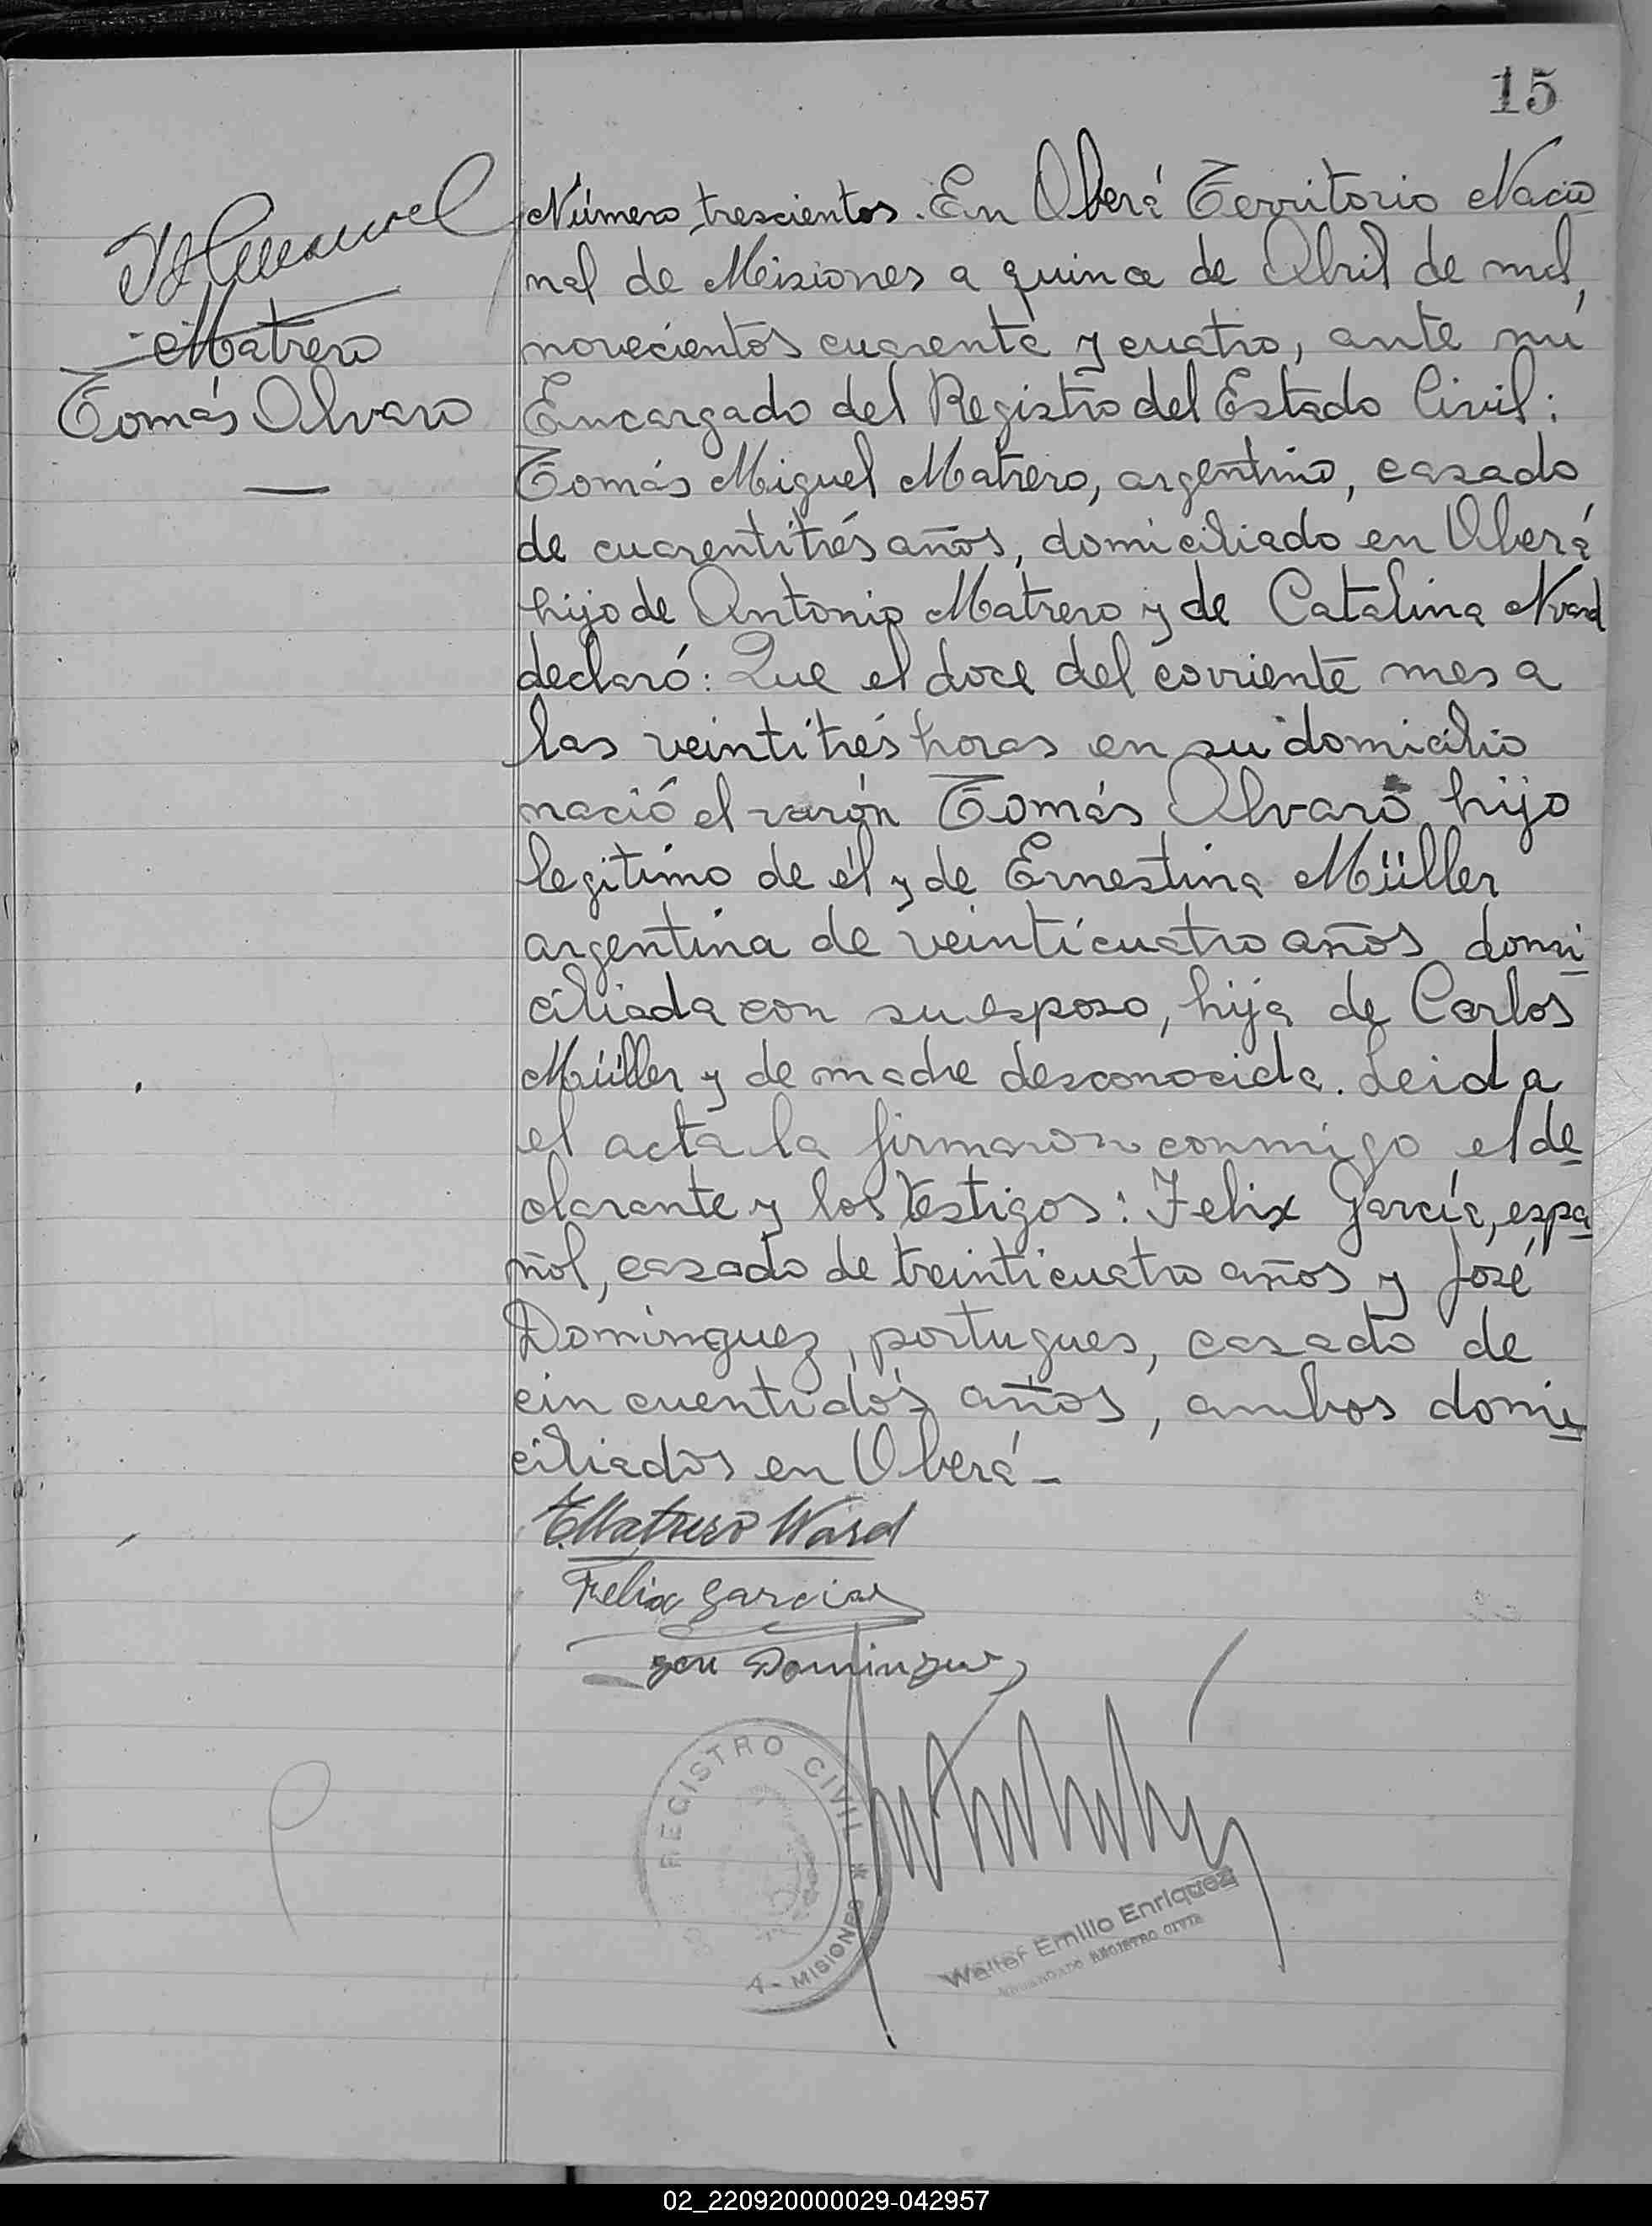 15
Matrero
Tomás Alvaro
Número trescientos. En Oberá Territorio Nacio
nal de Misiones a quince de Abril de mil
novecientos cuarenta y cuatro, ante mí
Encargado del Registro del Estado Civil:
Tomás Miguel Matrero, argentino, casado
de cuarentitrés años, domiciliado en Oberá
hijo de Antonio Matrero y de Catalina
declaró: Que el doce del corriente mes a
las veintitrés horas en su domicilio
nació el varón Tomás Alvaro hijo
legítimo de él y de Ernestina Müller
argentina de veinticuatro años domi
ciliada con su esposo, hija de Carlos
Müller y de madre desconocida. Leida
el acta la firmaron conmigo el de
clarante y los testigos: Felix García, espa
ñol, casado de treinticuatro años y José
Dominguez, portugues, casado de
cincuentidós años, ambos domi
ciliados en Oberá -
T. Matrero Ward
Felix Garcia
Dominguez
REGISTRO CIVIL * A - MISIONES
Walter Emilio Enriquez
ENCARGADO REGISTRO CIVIL
02_220920000029-042957